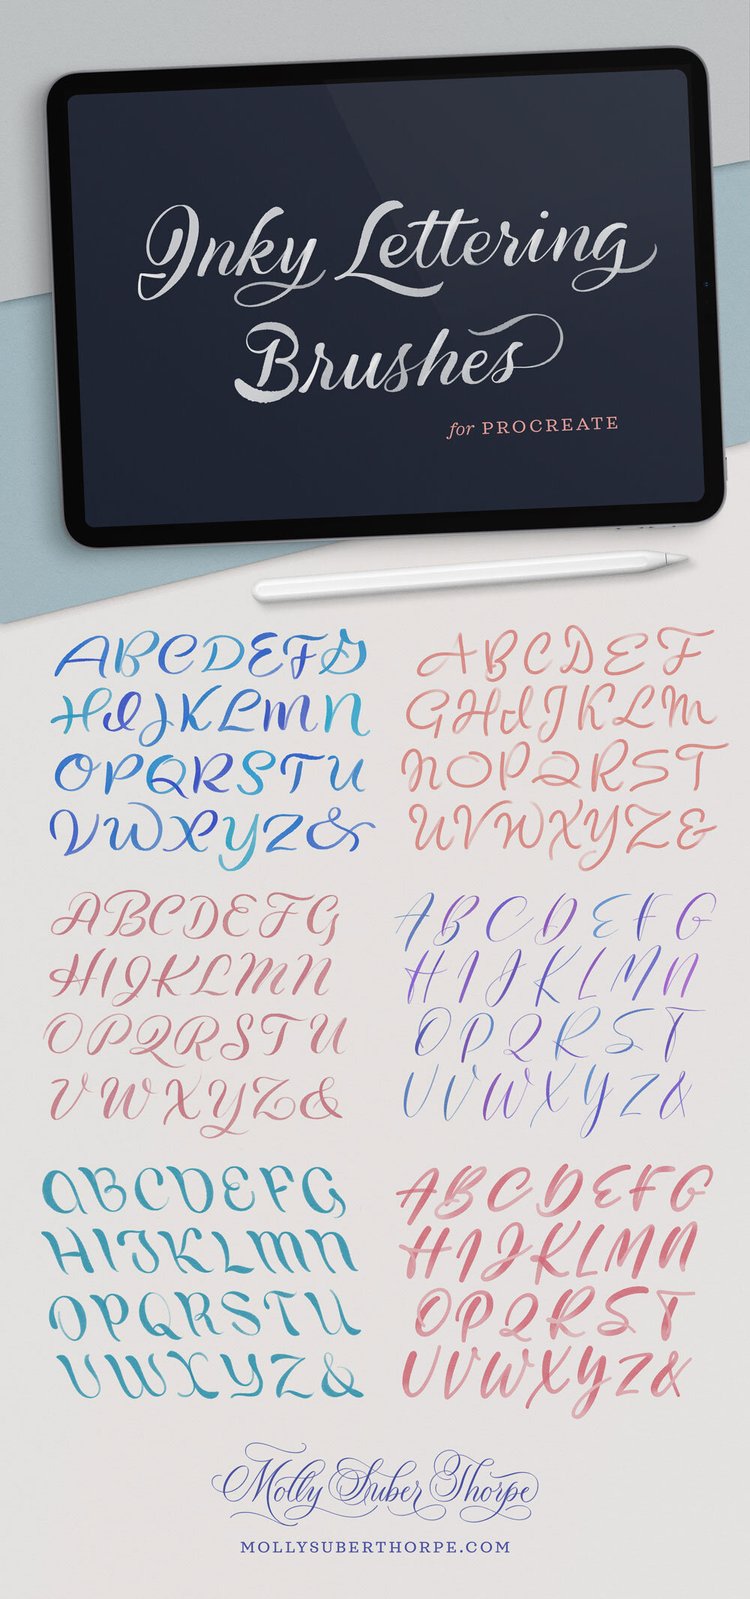 Inky Lettering
Brushes
for PROCREATE
ABCDEFG
HIJKLMN
OPQRSTU
VWXYZ&
ABCDEF
GHIJKLM
NOPQRST
UVWXYZ&
ABCDEFG
HIJKLMN
OPQRSTU
VWXYZ&
ABCDEFG
HIJKLMN
OPQRST
UVWXYZ&
ABCDEFG
HIJKLMN
OPQRSTU
VWXYZ&
ABCDEFG
HIJKLMN
OPQRST
UVWXYZ&
Molly Suber Thorpe
MOLLYSUBERTHORPE.COM